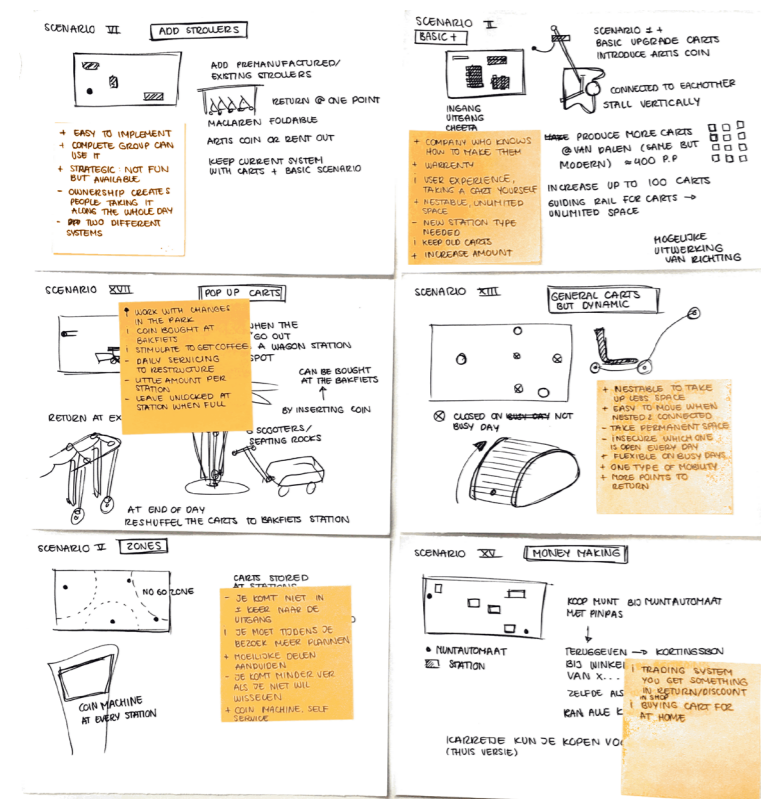 SCENARIO VI ADD STROLLERS
ADD PREMANUFACTURED/
EXISTING STROLLERS
RETURN @ ONE POINT
MACLAREN FOLDABLE
ARTIS COIN OR RENT OUT
KEEP CURRENT SYSTEM
WITH CARTS + BASIC SCENARIO
+ EASY TO IMPLEMENT
+ COMPLETE GROUP CAN
USE IT
+ STRATEGIC: NOT FUN
BUT AVAILABLE
- OWNERSHIP CREATES
PEOPLE TAKING IT
ALONG THE WHOLE DAY
- TWO DIFFERENT
SYSTEMS
SCENARIO II
BASIC +
SCENARIO 1 +
BASIC UPGRADE CARTS
INTRODUCE ARTIS COIN
CONNECTED TO EACHOTHER
STALL VERTICALLY
INGANG
UITGANG
CHEETA
MAKE PRODUCE MORE CARTS
@ VAN DALEN (SAME BUT
MODERN) ≈ 400 P.P
INCREASE UP TO 100 CARTS
GUIDING RAIL FOR CARTS →
UNLIMITED SPACE
MOGELIJKE
UITWERKING
VAN RICHTING
+ COMPANY WHO KNOWS
HOW TO MAKE THEM
+ WARRENTY
I USER EXPERIENCE,
TAKING A CART YOURSELF
+ NESTABLE, UNLIMITED
SPACE
- NEW STATION TYPE
NEEDED
I KEEP OLD CARTS
+ INCREASE AMOUNT
SCENARIO XVII POP UP CARTS
WHEN THE
GO OUT
A WAGON STATION
SPOT
CAN BE BOUGHT
AT THE BAKFIETS
BY INSERTING COIN
RETURN AT EX
SCOOTERS/
SEATING ROCKS
AT END OF DAY
RESHUFFEL THE CARTS TO BAKFIETS STATION
WORK WITH CHANGES
IN THE PARK
I COIN BOUGHT AT
BAKFIETS
I STIMULATE TO GET COFFEE
- DAILY SERVICING
TO RESTRUCTURE
- LITTLE AMOUNT PER
STATION
- LEAVE UNLOCKED AT
STATION WHEN FULL
SCENARIO XIII GENERAL CARTS
BUT DYNAMIC
⊗ CLOSED ON BUSY DAY NOT
BUSY DAY
+ NESTABLE TO TAKE
UP LESS SPACE
+ EASY TO MOVE WHEN
NESTED & CONNECTED
- TAKE PERMANENT SPACE
- INSECURE WHICH ONE
IS OPEN EVERY DAY
+ FLEXIBLE ON BUSY DAYS
+ ONE TYPE OF MOBILITY
+ MORE POINTS TO
RETURN
SCENARIO V ZONES
NO GO ZONE
CARTS STORED
AT STATIONS
COIN MACHINE
AT EVERY STATION
- JE KOMT NIET IN
1 KEER NAAR DE
UITGANG
I JE MOET TIJDENS JE
BEZOEK MEER PLANNEN
+ MOEILIJKE DELEN
AANDUIDEN
- JE KOMT MINDER VER
ALS JE NIET WIL
WISSELEN
+ COIN MACHINE, SELF
SERVICE
SCENARIO XV MONEY MAKING
KOOP MUNT BIJ MUNTAUTOMAAT
MET PINPAS
MUNTAUTOMAAT
STATION
TERUGGEVEN → KORTINGSBON
BIJ WINKEL
VAN X...
ZELFDE ALS
KAN ALLE K
KARRETJE KUN JE KOPEN VOO
(THUIS VERSIE)
I TRADING SYSTEM
YOU GET SOMETHING
IN RETURN/DISCOUNT
IN SHOP
I BUYING CART FOR
AT HOME